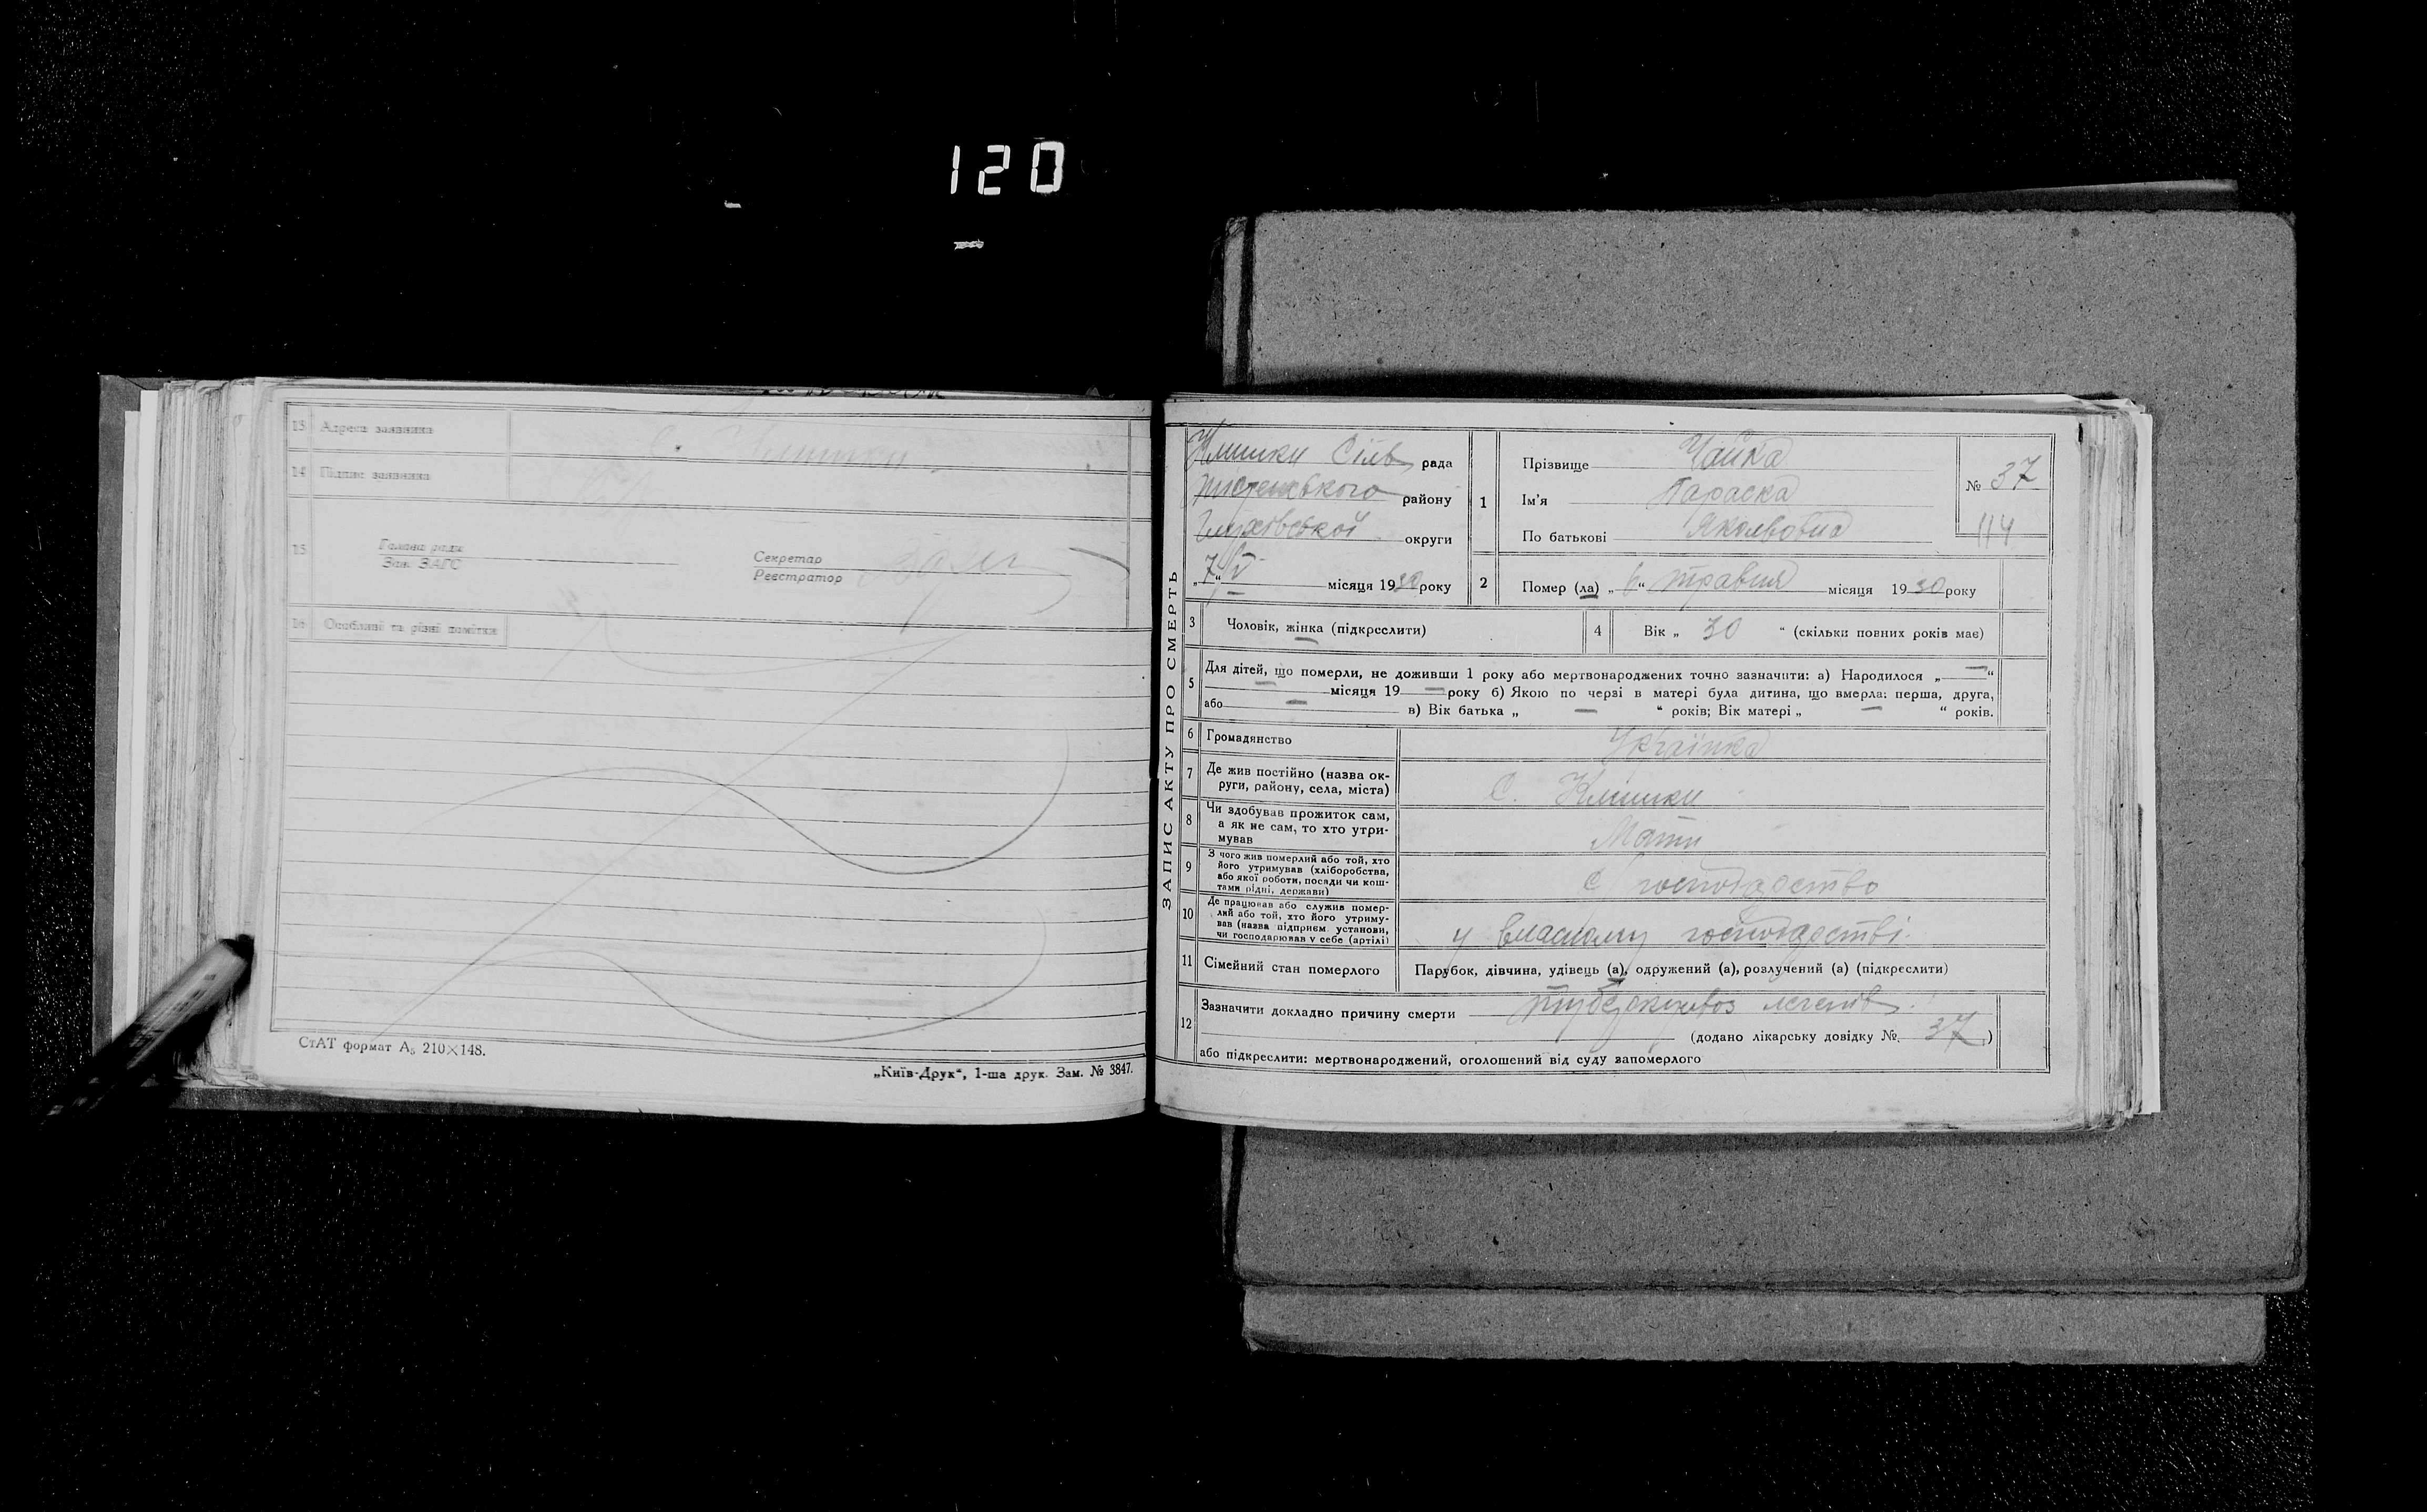 120
13 Адреса заявника с. Клишки
14 Підпис заявника
15 Голова ради Секретар
Зав. ЗАГС Реєстратор
16 Особливі та різні помітки
СтАТ формат А₅ 210×148.
„Київ-Друк“, 1-ша друк. Зам. № 3847.
ЗАПИС АКТУ ПРО СМЕРТЬ
Клишки Сільрада
району
Глухівської округи
„7“ V місяця 1930 року
1 Прізвище Чайка
Ім'я Параска
По батькові Яковловна
№ 37
114
2 Помер (ла) „6“ травня місяця 1930 року
3 Чоловік, жінка (підкреслити)
4 Вік „ 30 “ (скільки повних років має)
5 Для дітей, що померли, не доживши 1 року або мертвонароджених точно зазначити: а) Народилося „—“
— місяця 19 — року б) Якою по черзі в матері була дитина, що вмерла: перша, друга,
або — в) Вік батька „ — “ років; Вік матері „ — “ років.
6 Громадянство Українка
7 Де жив постійно (назва ок-
руги, району, села, міста) С. Клишки
8 Чи здобував прожиток сам,
а як не сам, то хто утри-
мував Мати
9 З чого жив померлий або той, хто
його утримував (хліборобства,
або якої роботи, посади чи кош-
тами рідні, держави) С господарство
10 Де працював або служив помер-
лий або той, хто його утриму-
вав (назва підприєм. установи,
чи господарював у себе (артілі) у власному господарстві.
11 Сімейний стан померлого Парубок, дівчина, удівець (а), одружений (а), розлучений (а) (підкреслити)
12 Зазначити докладно причину смерти туберкульоз легенів
(додано лікарську довідку № 37)
або підкреслити: мертвонароджений, оголошений від суду запомерлого